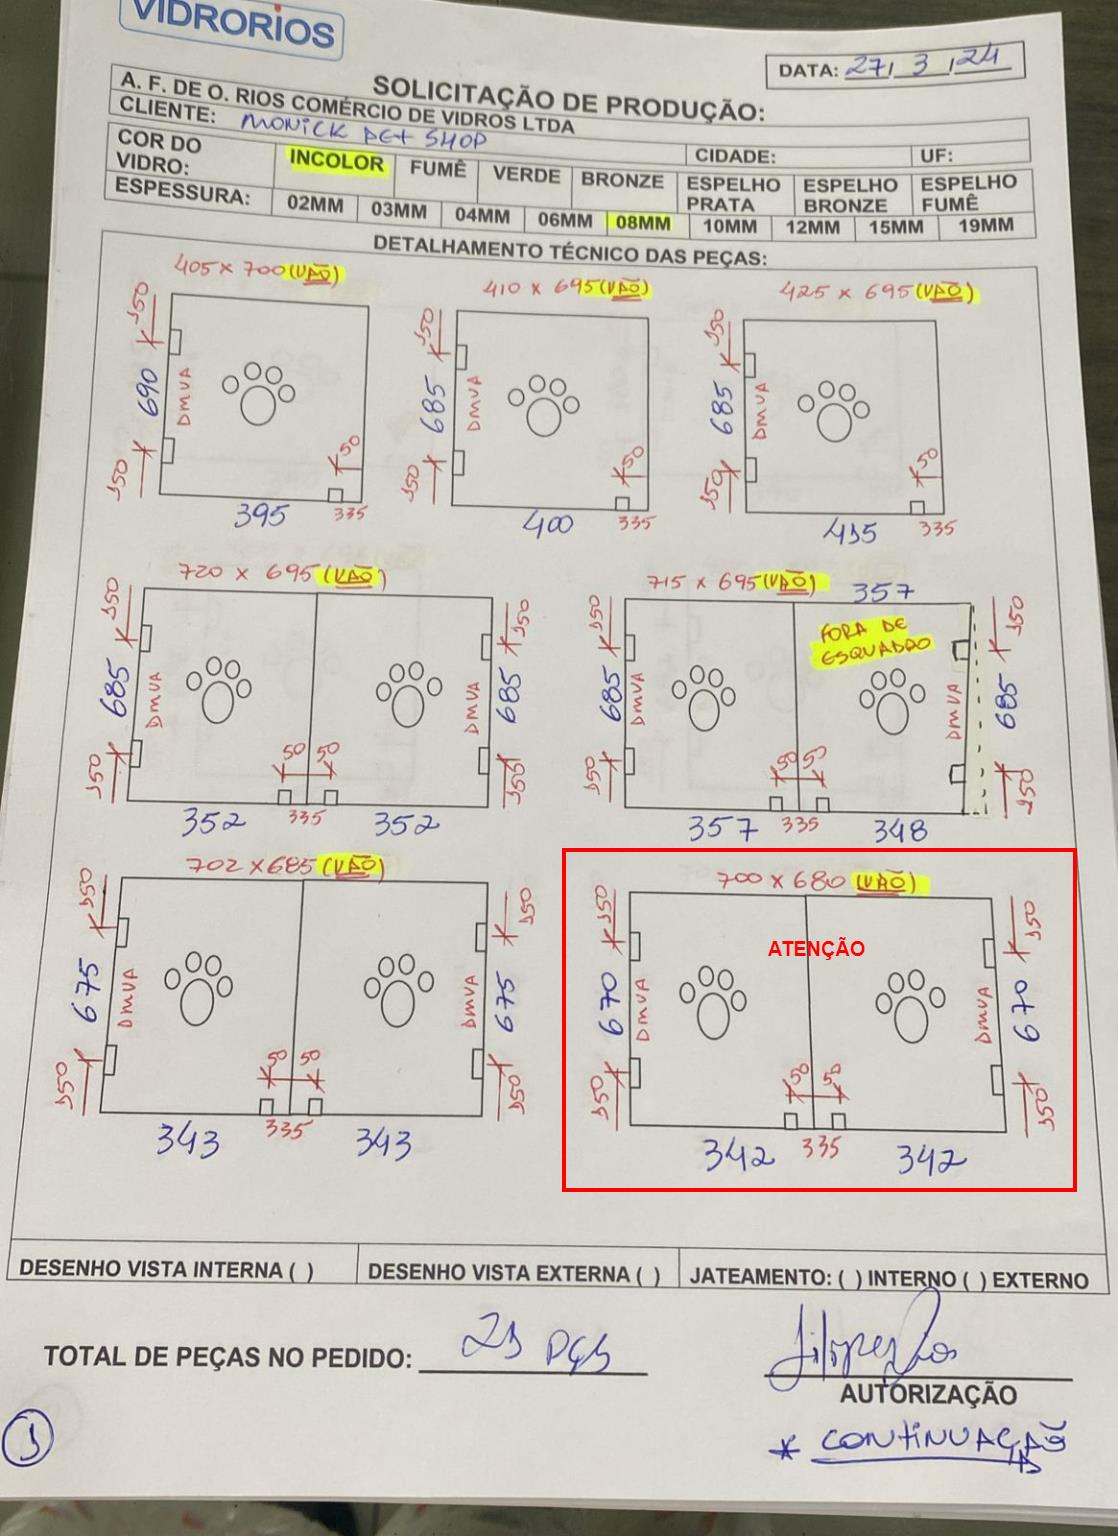 VIDRORIOS
DATA: 27/ 3 /24
SOLICITAÇÃO DE PRODUÇÃO:
A. F. DE O. RIOS COMÉRCIO DE VIDROS LTDA
CLIENTE: MONICK PET SHOP
CIDADE: UF:
COR DO VIDRO: INCOLOR FUMÊ VERDE BRONZE ESPELHO PRATA ESPELHO BRONZE ESPELHO FUMÊ
ESPESSURA: 02MM 03MM 04MM 06MM 08MM 10MM 12MM 15MM 19MM
DETALHAMENTO TÉCNICO DAS PEÇAS:
405 x 700 (VÃO) 410 x 695 (VÃO) 425 x 695 (VÃO)
150 150 150
690 DMVA 685 DMVA 685 DMVA
150 50 150 50 150 50
395 335 400 335 415 335
720 x 695 (VÃO) 715 x 695 (VÃO) 357
150 150 150 FORA DE ESQUADRO 150
685 DMVA DMVA 685 685 DMVA DMVA 685
150 50 50 150 150 50 50 150
352 335 352 357 335 348
702 x 685 (VÃO) 700 x 680 (VÃO)
150 150 150 ATENÇÃO 150
675 DMVA DMVA 675 670 DMVA DMVA 670
150 50 50 150 150 50 50 150
343 335 343 342 335 342
DESENHO VISTA INTERNA ( ) DESENHO VISTA EXTERNA ( ) JATEAMENTO: ( ) INTERNO ( ) EXTERNO
TOTAL DE PEÇAS NO PEDIDO: 21 PÇS
AUTORIZAÇÃO
* CONTINUAÇÃO
1